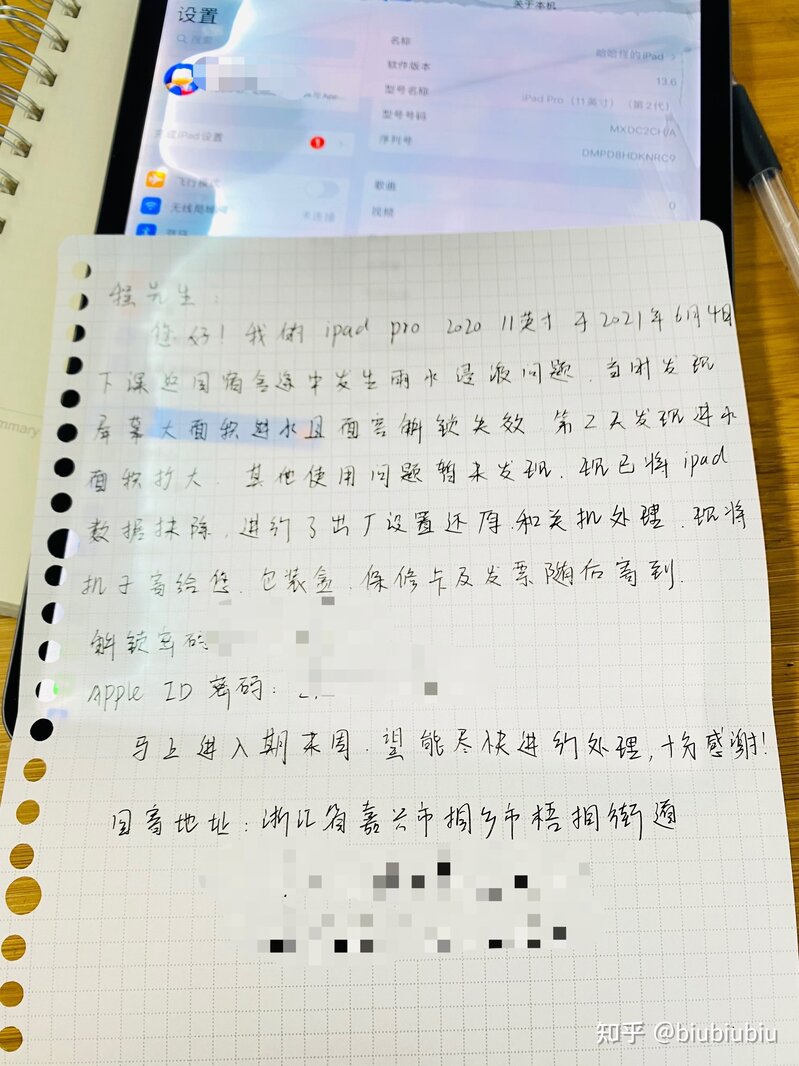 设置
关于本机
搜索
名称
哈哈怪的iPad
软件版本
13.6
型号名称
iPad Pro（11英寸）（第2代）
型号号码
MXDC2CH/A
序列号
DMPDBHDKNRC9
完成iPad设置
1
歌曲
0
飞行模式
视频
无线局域网
未连接
蓝牙
mmary
程先生：
您好！我俩 ipad pro 2020 11英寸 于2021年6月4日
下课返回宿舍途中发生雨水浸液问题．当时发现
屏幕大面积进水且面容解锁失效．第2天发现进水
面积扩大．其他使用问题暂未发现．现已将ipad
数据抹除，进行了出厂设置还原和关机处理．现将
机子寄给您．包装盒．保修卡及发票随后寄到．
解锁密码
Apple ID 密码：
马上进入期末周．望能尽快进行处理，十分感谢！
回寄地址：浙江省嘉兴市桐乡市梧桐街道
知乎 @biubiubiu